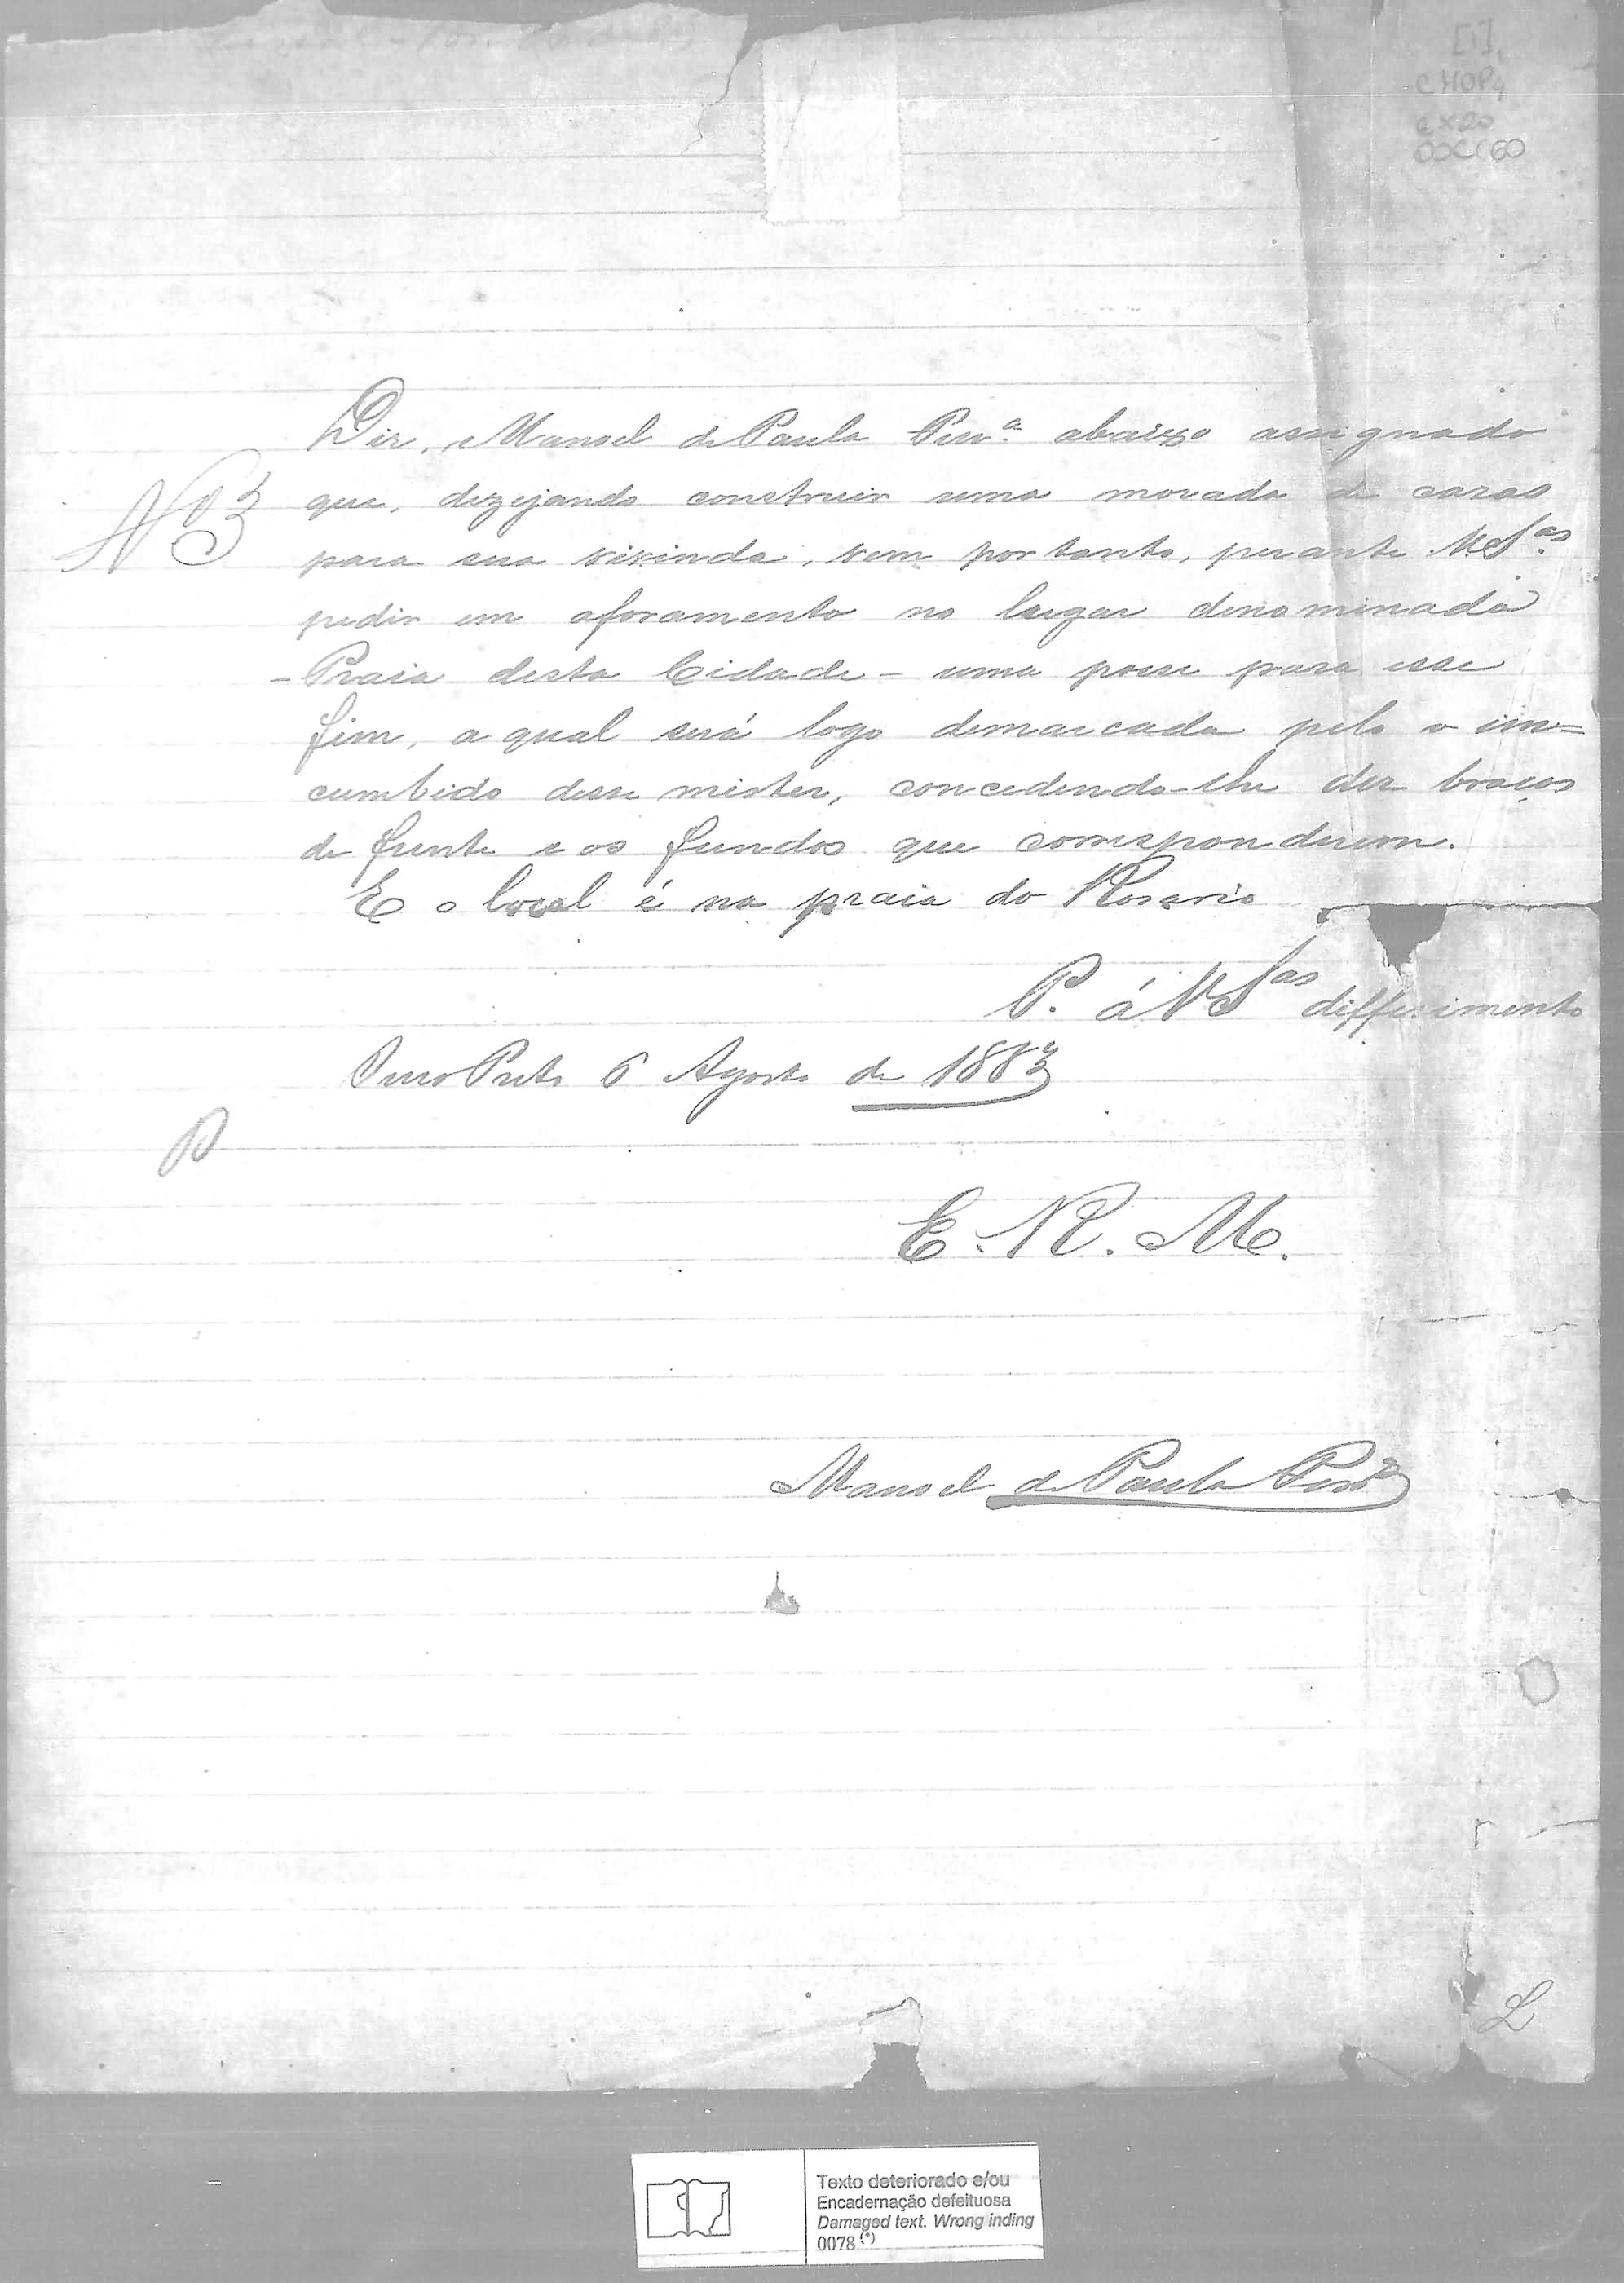 [1]
CMOP
CX20
DOC (60
Diz, Manoel de Paula Per.ª abaixo assignado
Nº 3
que, dezejando construir uma morada de cazas
para sua vivinda, vem por tanto, perante VeSas.
pedir em aforamento no lugar denominado
- Praia desta Cidade - uma posse para esse
fim, a qual será logo demarcada pelo o in=
cumbido desse mister, concedendo-lhe dez braços
de frente e os fundos que corresponderem.
E o local é na praia do Rosario
P. á VSas differimento
Ouro Preto 6 Agosto de 1883
E. R. Me.
Manoel de Paula Perª
L
Texto deteriorado e/ou
Encadernação defeituosa
Damaged text. Wrong inding
0078 (*)